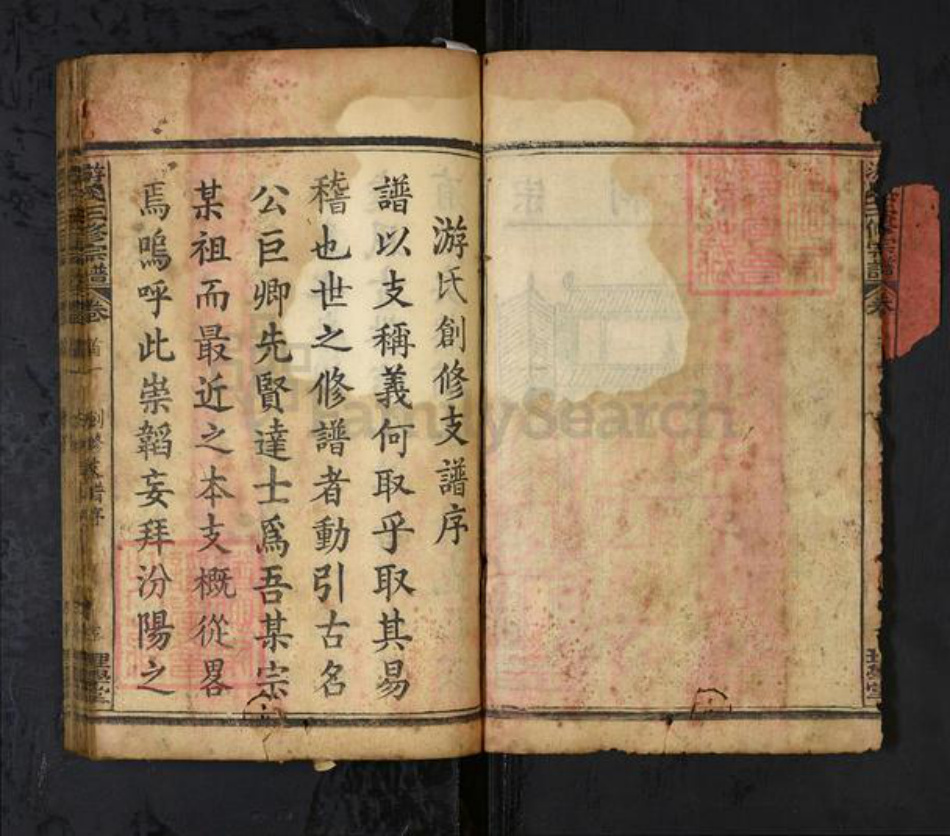 游氏創修支譜序
譜以支稱義何取乎取其易
稽也世之修譜者動引古名
公巨卿先賢達士爲吾某宗
某祖而最近之本支概從畧
焉嗚呼此崇韜妄拜汾陽之
游氏三修宗譜 卷首一 創修支譜序 理學堂
FamilySearch